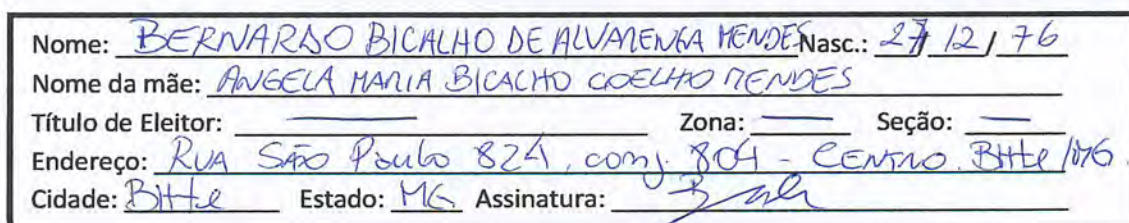 Nome: BERNARDO BICALHO DE ALVARENGA MENDES Nasc.: 27/12/76
Nome da mãe: ANGELA MARIA BICALHO COELHO MENDES
Título de Eleitor: — Zona: — Seção: —
Endereço: RUA São Paulo 824, conj. 804 - CENTRO. BHte/MG.
Cidade: BHte Estado: MG Assinatura: